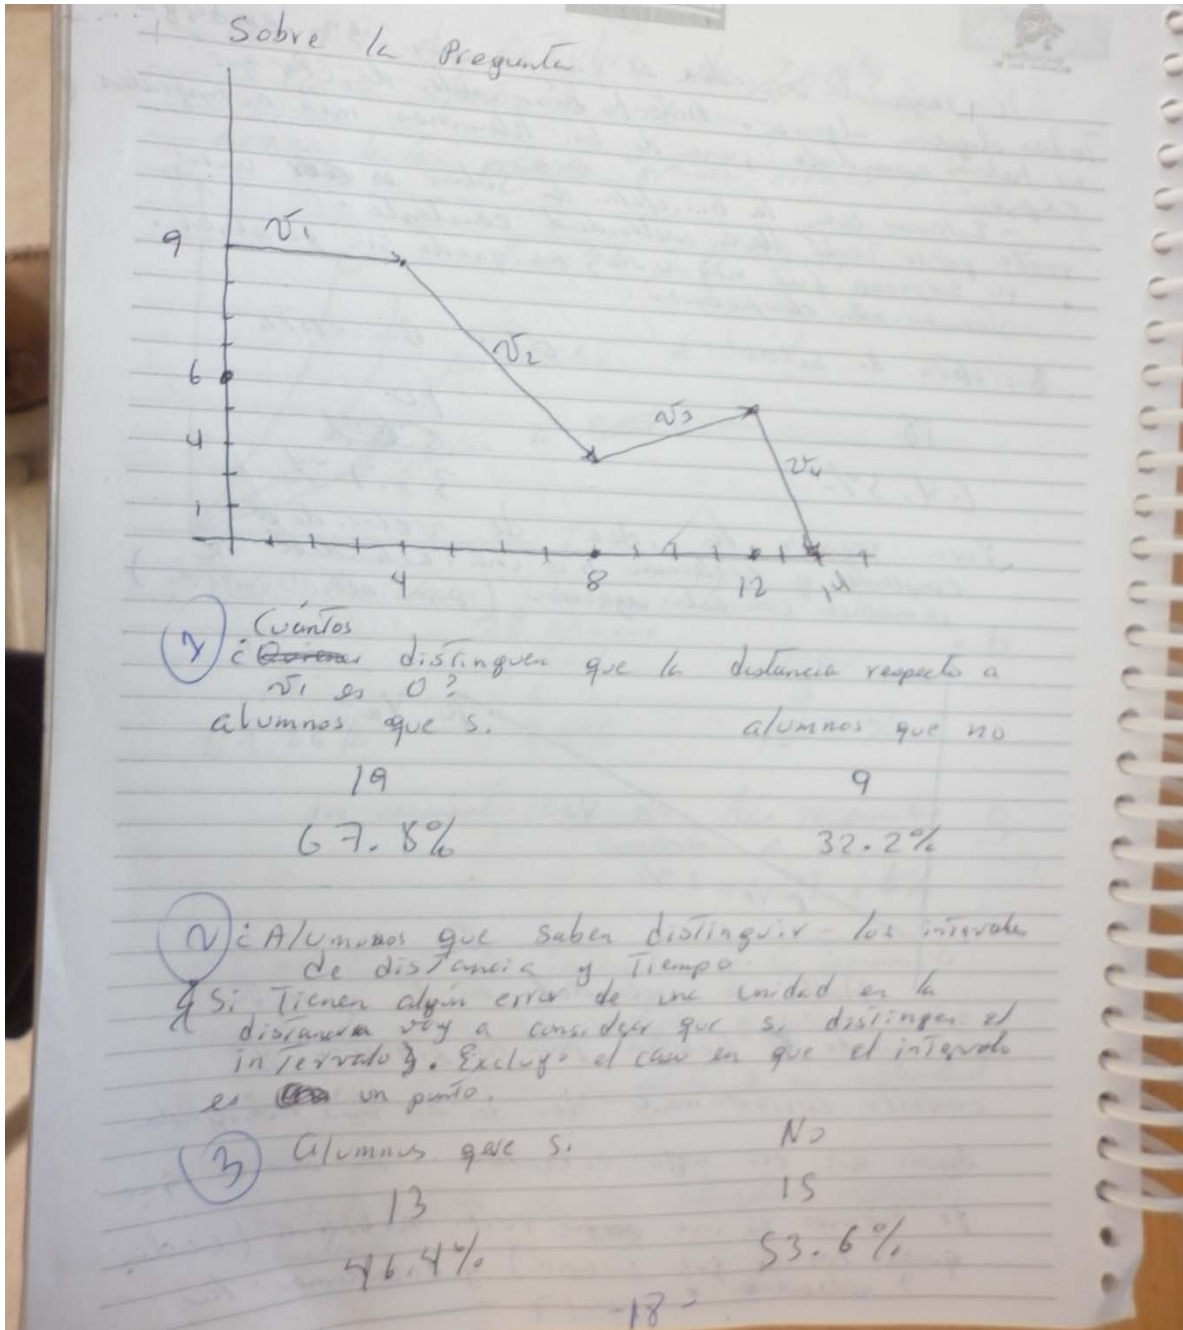 Sobre la Pregunta
v1
9
v2
6
v3
4
v4
1
4 8 12 14
Cuántos
1 ¿ distinguen que la distancia respecto a
v1 es 0?
alumnos que si. alumnos que no
19 9
67.8% 32.2%
2 ¿Alumnos que saben distinguir los intervalos
de distancia y Tiempo
Si Tienen algún error de una unidad en la
distancia voy a considerar que si distingen el
intervalo}. Excluyo el caso en que el intervalo
es un punto.
3 Alumnos que si. No
13 15
46.4% 53.6%
-18-